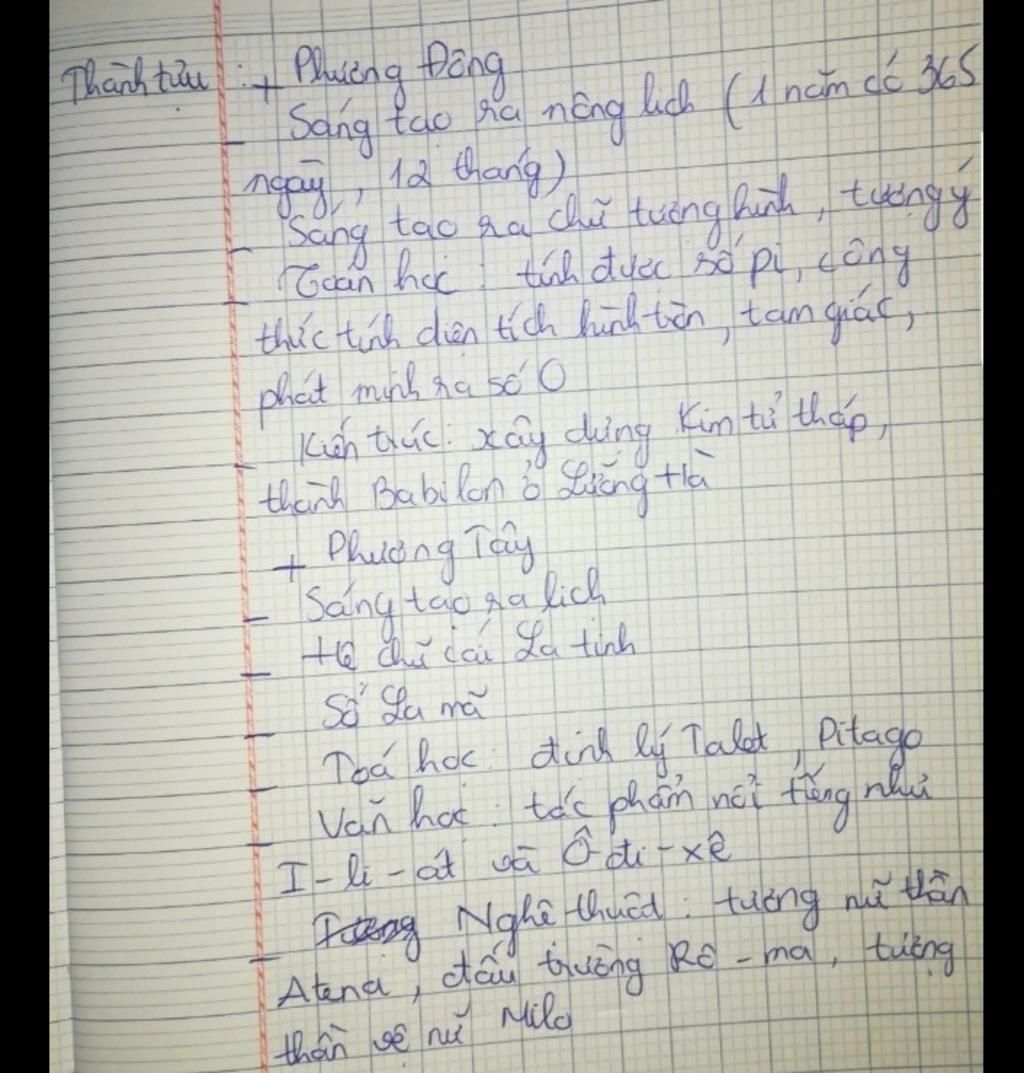 Thành tựu : + Phương Đông
- Sáng tạo ra nông lịch (1 năm có 365
ngày, 12 tháng)
- Sáng tạo ra chữ tượng hình, tượng ý
- Toán học : tính được số pi, công
thức tính diện tích hình tròn, tam giác,
phát minh ra số 0
- Kiến trúc: xây dựng Kim tử tháp,
thành Babilon ở Lưỡng Hà
+ Phương Tây
- Sáng tạo ra lịch
- Hệ chữ cái La tinh
- Số La mã
- Toá học : định lý Talet, Pitago
- Văn học : tác phẩm nổi tiếng như
I-li-át và Ô-đi-xê
- Nghệ thuật : tượng nữ thần
Atena, đấu trường Rô-ma, tượng
thần vệ nữ Milo